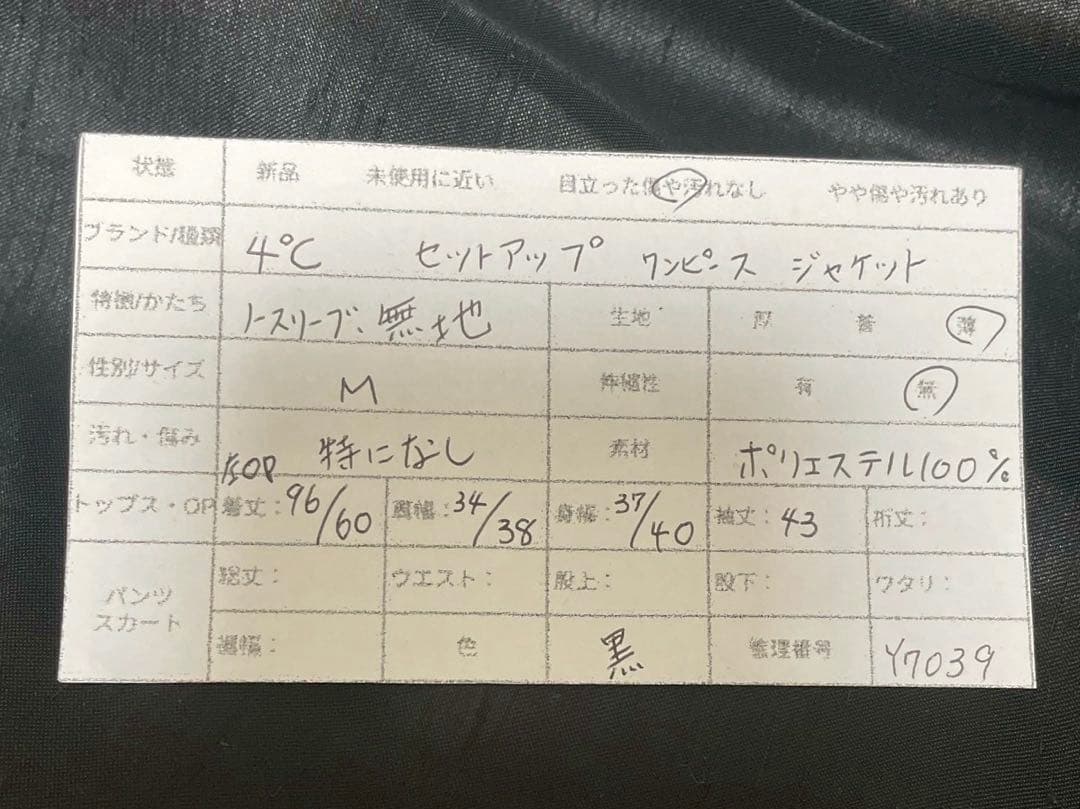 状態 新品 未使用に近い 目立った傷や汚れなし やや傷や汚れあり
ブランド/種類 4℃ セットアップ ワンピース ジャケット
特徴/かたち ノースリーブ、無地 生地 厚 普 薄
性別/サイズ M 伸縮性 有 無
汚れ・傷み 特になし 素材 ポリエステル100%
トップス・OP 着丈：96/60 肩幅：34/38 身幅：37/40 袖丈：43 裄丈：
パンツ スカート 総丈： ウエスト： 股上： 股下： ワタリ：
裾幅： 色 黒 管理番号 Y7039